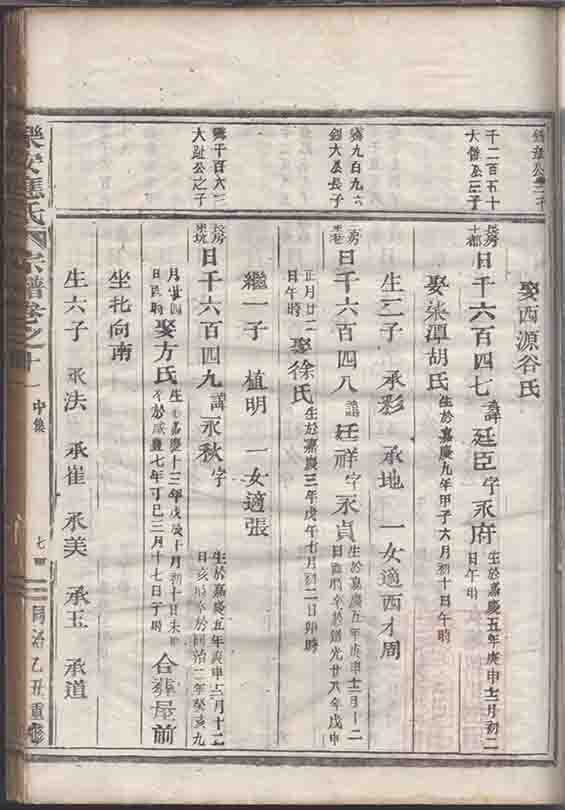 娶西源谷氏
千二百五十
大

日千六百四七 諱廷臣 字永府 生於嘉慶五年庚申十二月初二
日午時
娶柒潭胡氏 生於嘉慶九年甲子六月初十日午時
生二子 承彩 承地 一女適西才周
九百九六
長子
日千六百四八 諱廷祥 字永貞 生於嘉慶五年庚申十二月十二
卒於道光廿八年戊申
正月廿二
日午時 娶徐氏 生於嘉慶三年戊午七月初二日卯時
繼一子 植明 一女適張
千百六三
大趾公之子
日千六百四九 諱永秋 字 生於嘉慶五年庚申十二月十二
日亥時卒於同治二年癸亥九
月廿四
日 時 娶方氏 生 嘉慶十三年戊辰十月初十日未時
卒於咸豐七年丁巳三月十七日子時 合葬屋前
坐北向南
生六子 承法 承崔 承美 承玉 承道
樂安蔣氏宗譜卷之十一 中集 七 同治乙丑重修